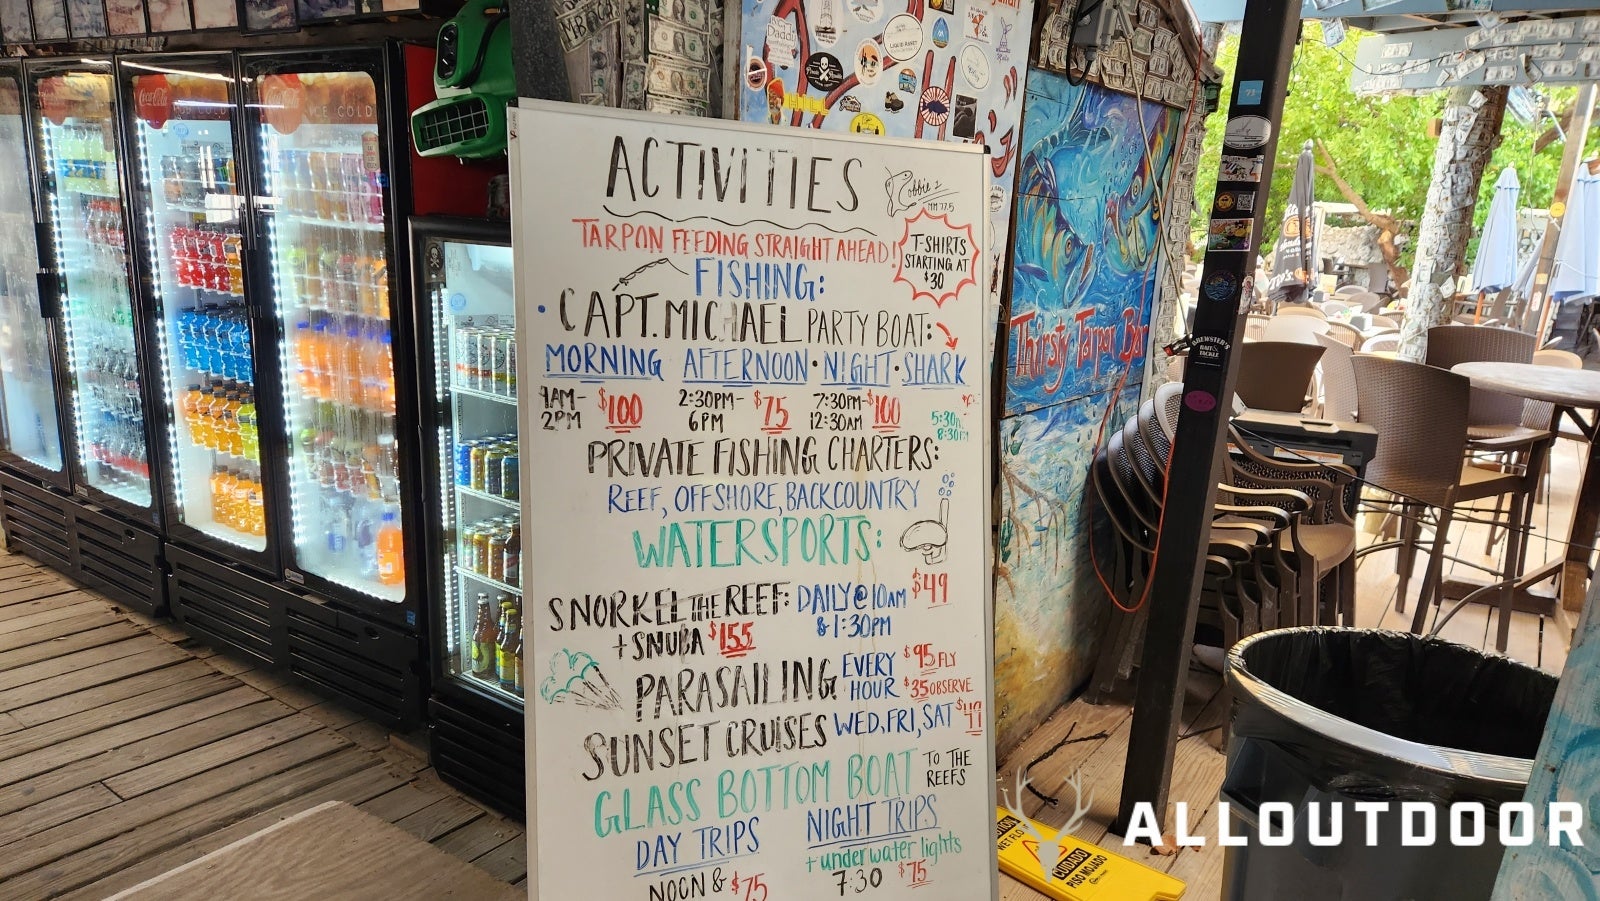 ACTIVITIES
MM 77.5
TARPON FEEDING STRAIGHT AHEAD!
T-SHIRTS
STARTING AT
$30
FISHING:
CAPT. MICHAEL PARTY BOAT:
MORNING AFTERNOON · NIGHT · SHARK
9AM-
2PM
$100
2:30PM-
6PM
$75
7:30PM-
12:30AM
$100
5:30PM
8:30PM
PRIVATE FISHING CHARTERS:
REEF, OFFSHORE, BACKCOUNTRY
WATERSPORTS:
SNORKEL THE REEF: DAILY @ 10AM $49
& 1:30PM
+ SNUBA $155
PARASAILING EVERY HOUR
$95 FLY
$35 OBSERVE
SUNSET CRUISES WED, FRI, SAT
GLASS BOTTOM BOAT TO THE REEFS
DAY TRIPS
NOON & $75
NIGHT TRIPS
+ underwater lights
7:30 $75
Thirsty Tarpon Bar
Coca-Cola
ICE COLD
BREWSTER'S
BAIT & TACKLE
WET FLOOR
CUIDADO
PISO MOJADO
ALLOUTDOOR